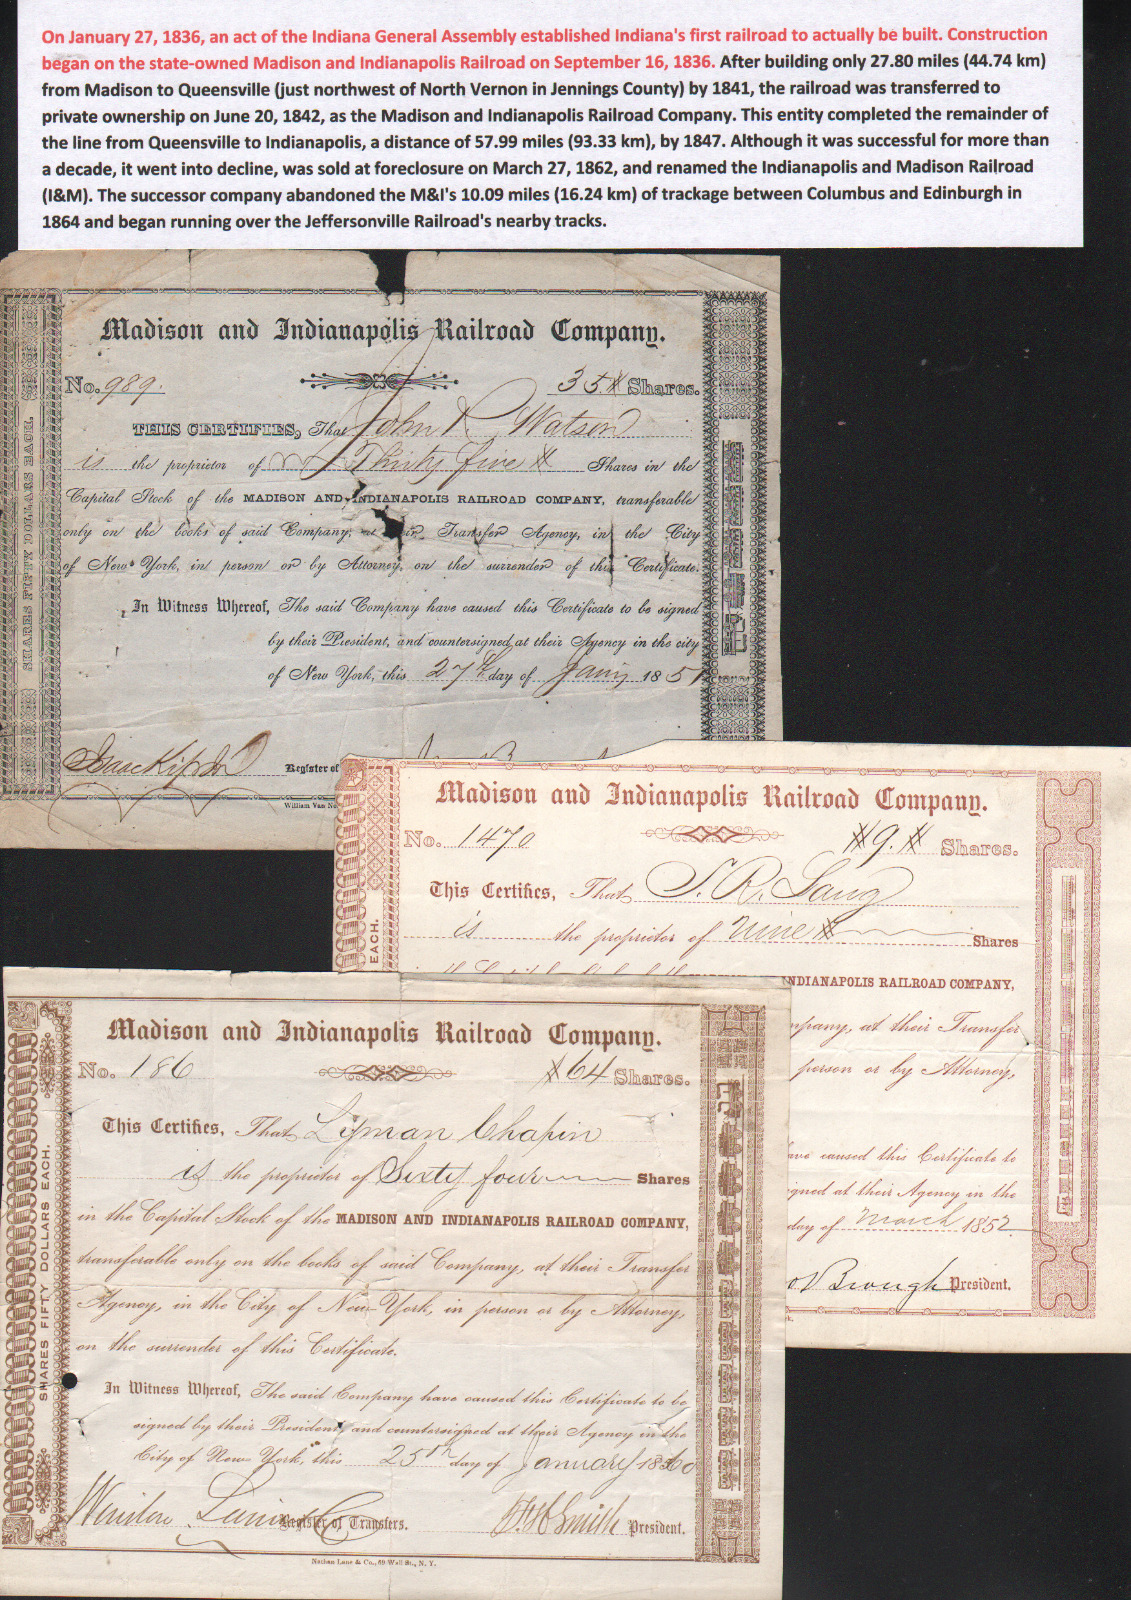 On January 27, 1836, an act of the Indiana General Assembly established Indiana's first railroad to actually be built. Construction
began on the state-owned Madison and Indianapolis Railroad on September 16, 1836. After building only 27.80 miles (44.74 km)
from Madison to Queensville (just northwest of North Vernon in Jennings County) by 1841, the railroad was transferred to
private ownership on June 20, 1842, as the Madison and Indianapolis Railroad Company. This entity completed the remainder of
the line from Queensville to Indianapolis, a distance of 57.99 miles (93.33 km), by 1847. Although it was successful for more than
a decade, it went into decline, was sold at foreclosure on March 27, 1862, and renamed the Indianapolis and Madison Railroad
(I&M). The successor company abandoned the M&I's 10.09 miles (16.24 km) of trackage between Columbus and Edinburgh in
1864 and began running over the Jeffersonville Railroad's nearby tracks.
SHARES FIFTY DOLLARS EACH.
Madison and Indianapolis Railroad Company.
No. 989. 35 Shares.
THIS CERTIFIES, That John R Watson
is the proprietor of Thirty five Shares in the
Capital Stock of the MADISON AND INDIANAPOLIS RAILROAD COMPANY, transferable
only on the books of said Company, at their Transfer Agency, in the City
of New York, in person or by Attorney, on the surrender of this Certificate.
In Witness Whereof, The said Company have caused this Certificate to be signed
by their President, and countersigned at their Agency in the city
of New York, this 27th day of 1851
Register of
William Van N
EACH.
Madison and Indianapolis Railroad Company.
No. 1470 9. Shares.
This Certifies, That S. R. Lang
is the proprietor of Nine Shares
INDIANAPOLIS RAILROAD COMPANY,
mpany, at their Transfer
person or by Attorney,
ave caused this Certificate to
igned at their Agency in the
day of March 1852
Brough President.
SHARES FIFTY DOLLARS EACH.
Madison and Indianapolis Railroad Company.
No. 186 64 Shares.
This Certifies, That Lyman Chapin
is the proprietor of Sixty four Shares
in the Capital Stock of the MADISON AND INDIANAPOLIS RAILROAD COMPANY,
transferable only on the books of said Company, at their Transfer
Agency, in the City of New York, in person or by Attorney,
on the surrender of this Certificate.
In Witness Whereof, The said Company have caused this Certificate to be
signed by their President, and countersigned at their Agency in the
City of New York, this 25th day of January 1860
Winslow Lanier & Co Register of Transfers. Smith President.
Nathan Lane & Co., 69 Wall St., N. Y.